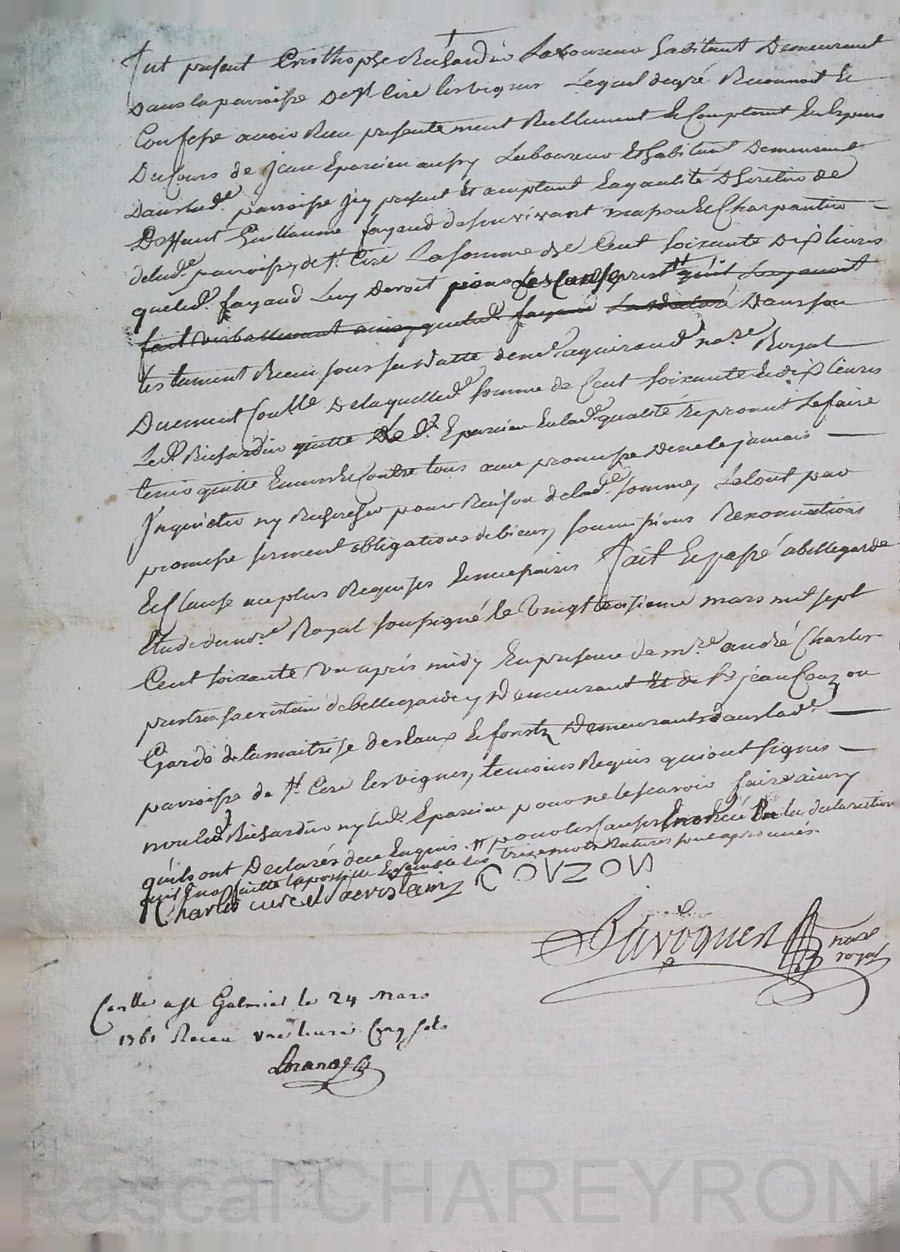 fut présent Cristhophe Richardin Laboureur habitant Demeurant
Dans la parroisse De st Cire les vignes Lequel de gré Reconnoit Et
Confesse avoir Receu présentement Reellement Et Comptant En Espesses
Du Cours de jean Eparcieu Laboureur Et habitant Demeurant
Dans lad.e parroisse jcy présent Et aceptant En qualité D'héritier de
Deffunt Guillaume fayaud de son vivant masson Et Charpantier
de lad.e parroisse de st Cire La somme de Cent soixante Dix livres
que led. fayaud Luy Devoit
fait verballement ainsy que led. fayaud Dans son
testament Receu sous sa datte de me no.re Royal
Duement Conllé De laquelled.e somme de Cent soixante Et dix livres
Led. Richardin quitte Led. Eparcieu En lad.e qualité Et promet Le faire
tenir quitte Envers Et Contre tous avec promesse De ne le jamais
Jnquieter ny Rechercher pour Raison de lad.e somme, Le tout par
promesse serment obligations de biens, soumissions Renonciations
Et Clause au plus Requises Et necessaires fait Et passé a bellegarde
Etude du no.re Royal soussigné le vingt troisieme mars mil sept
Cent soixante Un après midy En présence de m.re andré Charles
prestre sacristain de bellegarde y Demeurant Et de sr jean Couzon
Garde de la maitrise des Eaux Et forests Demeurant dans lad.e
parroisse de st Cire les vignes, temoins Requis qui ont signés
non led. Richardin ny led. Eparcieu pour ne le scavoir faire ainsy
qu'ils ont Déclarés de ce Enquis la declaration
approuvés
Charles curé et sacristain COUZON
no.re
royal
Conllé a st Galmier le 24 Mars
1761 Receu une livre Cinq sols